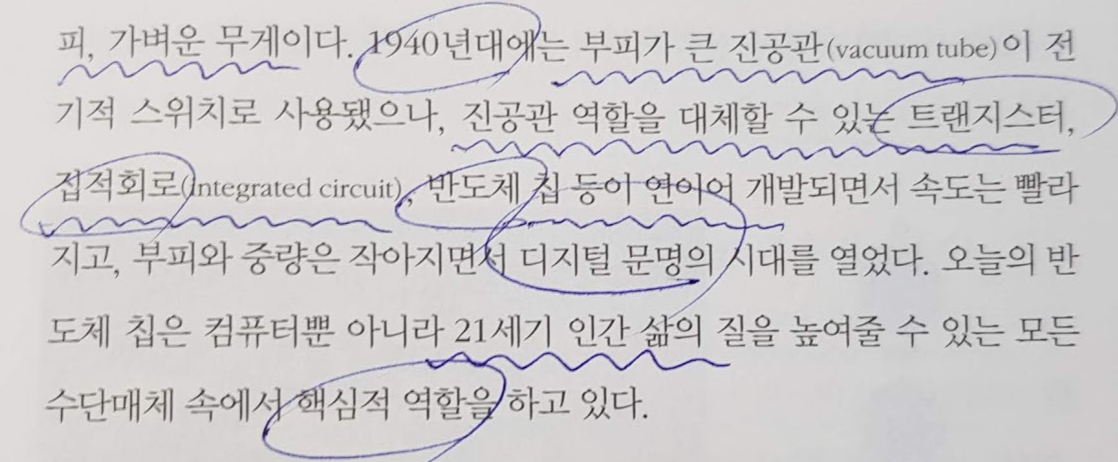 피, 가벼운 무게이다. 1940년대에는 부피가 큰 진공관(vacuum tube)이 전
기적 스위치로 사용됐으나, 진공관 역할을 대체할 수 있는 트랜지스터,
집적회로(integrated circuit), 반도체 칩 등이 연이어 개발되면서 속도는 빨라
지고, 부피와 중량은 작아지면서 디지털 문명의 시대를 열었다. 오늘의 반
도체 칩은 컴퓨터뿐 아니라 21세기 인간 삶의 질을 높여줄 수 있는 모든
수단매체 속에서 핵심적 역할을 하고 있다.